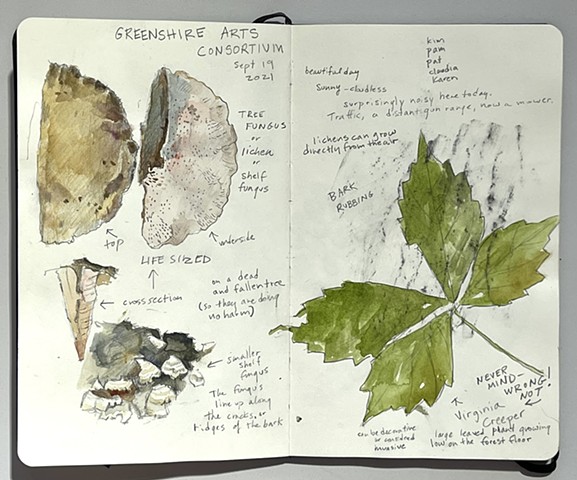 GREENSHIRE ARTS
CONSORTIUM
Sept 19
2021
TREE
FUNGUS
or
lichen
or
shelf
fungus
top
underside
LIFE SIZED
cross section
on a dead
and fallen tree
(so they are doing
no harm)
smaller
shelf
fungus
The fungus
line up along
the cracks, or
ridges of the bark
kim
pam
pat
claudia
Karen
beautiful day
sunny - cloudless
surprisingly noisy here today.
Traffic, a distant gun range, now a mower.
lichens can grow
directly from the air
BARK
RUBBING
NEVER
MIND-
WRONG!
NOT
Virginia
Creeper
large leaved plant growing
low on the forest floor
can be decorative
or considred
invasive